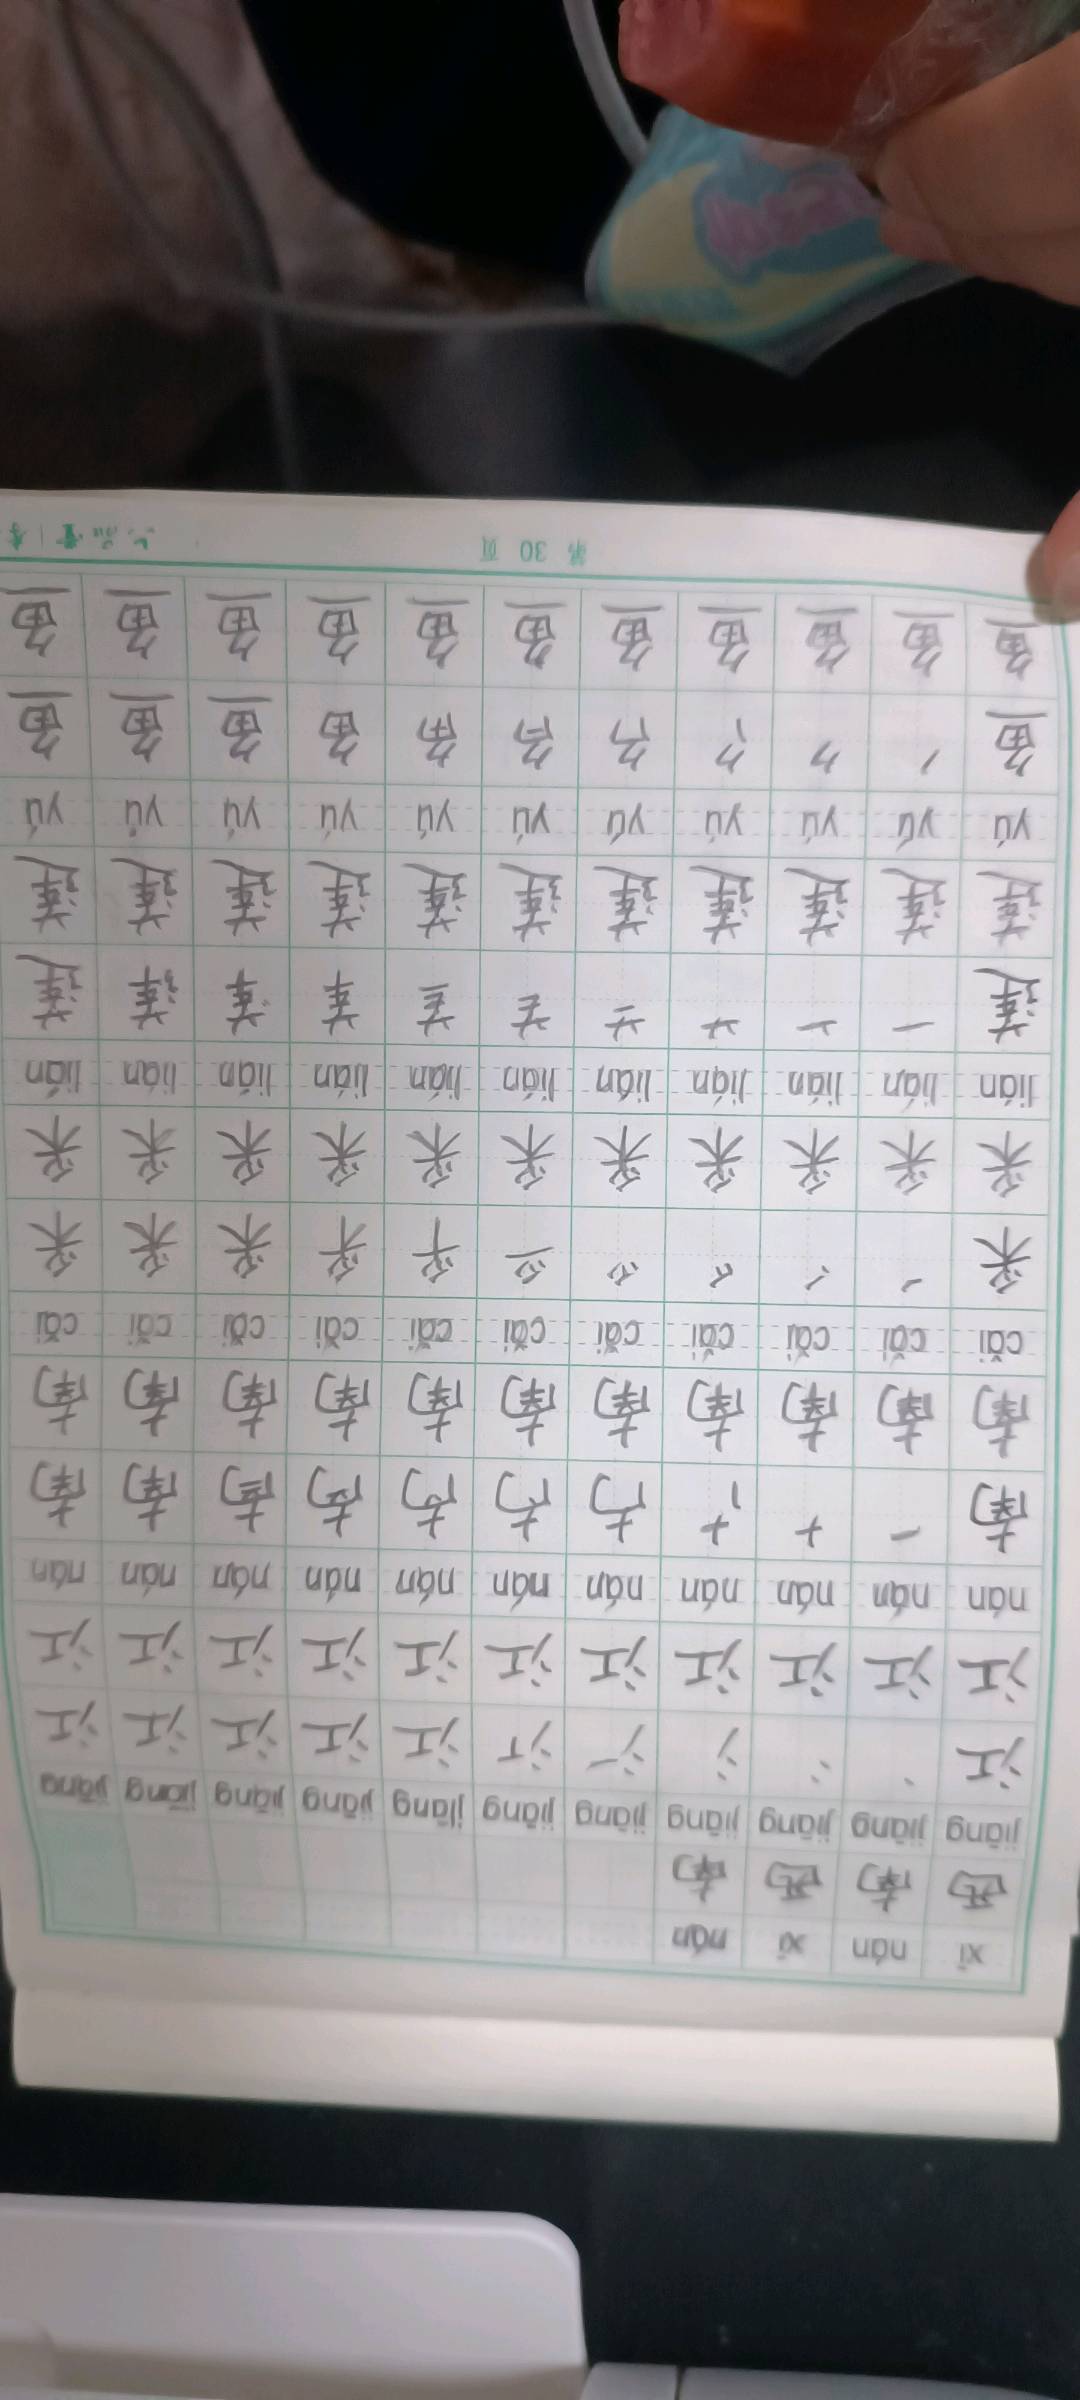 xī nán xī nán
西 南 西 南
jiāng jiāng jiāng jiāng jiāng jiāng jiāng jiāng jiāng jiāng jiāng
江 丶 冫 氵 江 江 江 江 江
江 江 江 江 江 江 江 江 江 江 江
nán nán nán nán nán nán nán nán nán nán nán
南 一 十 南 南
南 南 南 南 南 南 南 南 南 南 南
cǎi cǎi cǎi cǎi cǎi cǎi cǎi cǎi cǎi cǎi cǎi
采 丿 爫 采 采 采
采 采 采 采 采 采 采 采 采 采 采
lián lián lián lián lián lián lián lián lián lián lián
莲 一 十 艹 莲
莲 莲 莲 莲 莲 莲 莲 莲 莲 莲 莲
yú yú yú yú yú yú yú yú yú yú yú
鱼 丿 𠂊 鱼 鱼 鱼
鱼 鱼 鱼 鱼 鱼 鱼 鱼 鱼 鱼 鱼 鱼
第 30 页